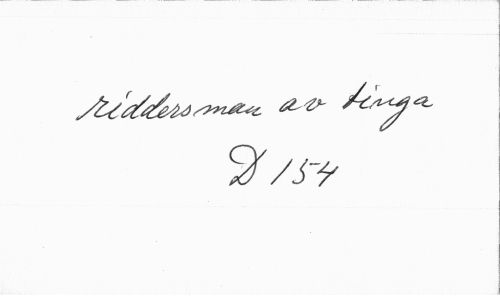 riddersman av tinga
D 154